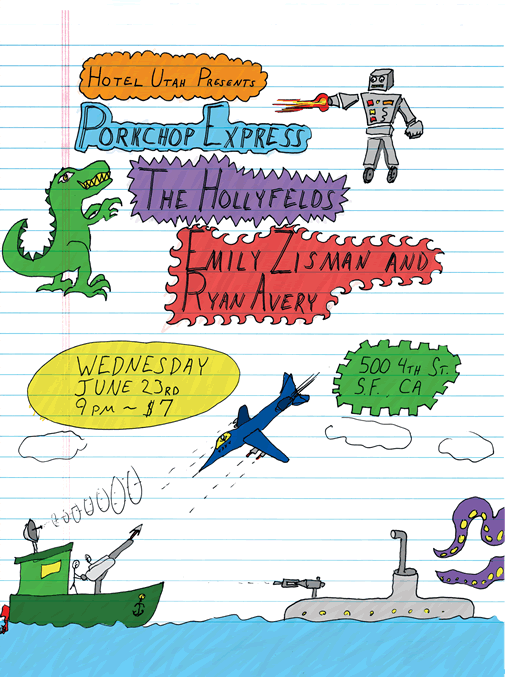 HOTEL UTAH PRESENTS
PORKCHOP EXPRESS
THE HOLLYFELDS
EMILY ZISMAN AND
RYAN AVERY
WEDNESDAY
JUNE 23RD
9 PM ~ $7
500 4TH ST.
S.F. CA